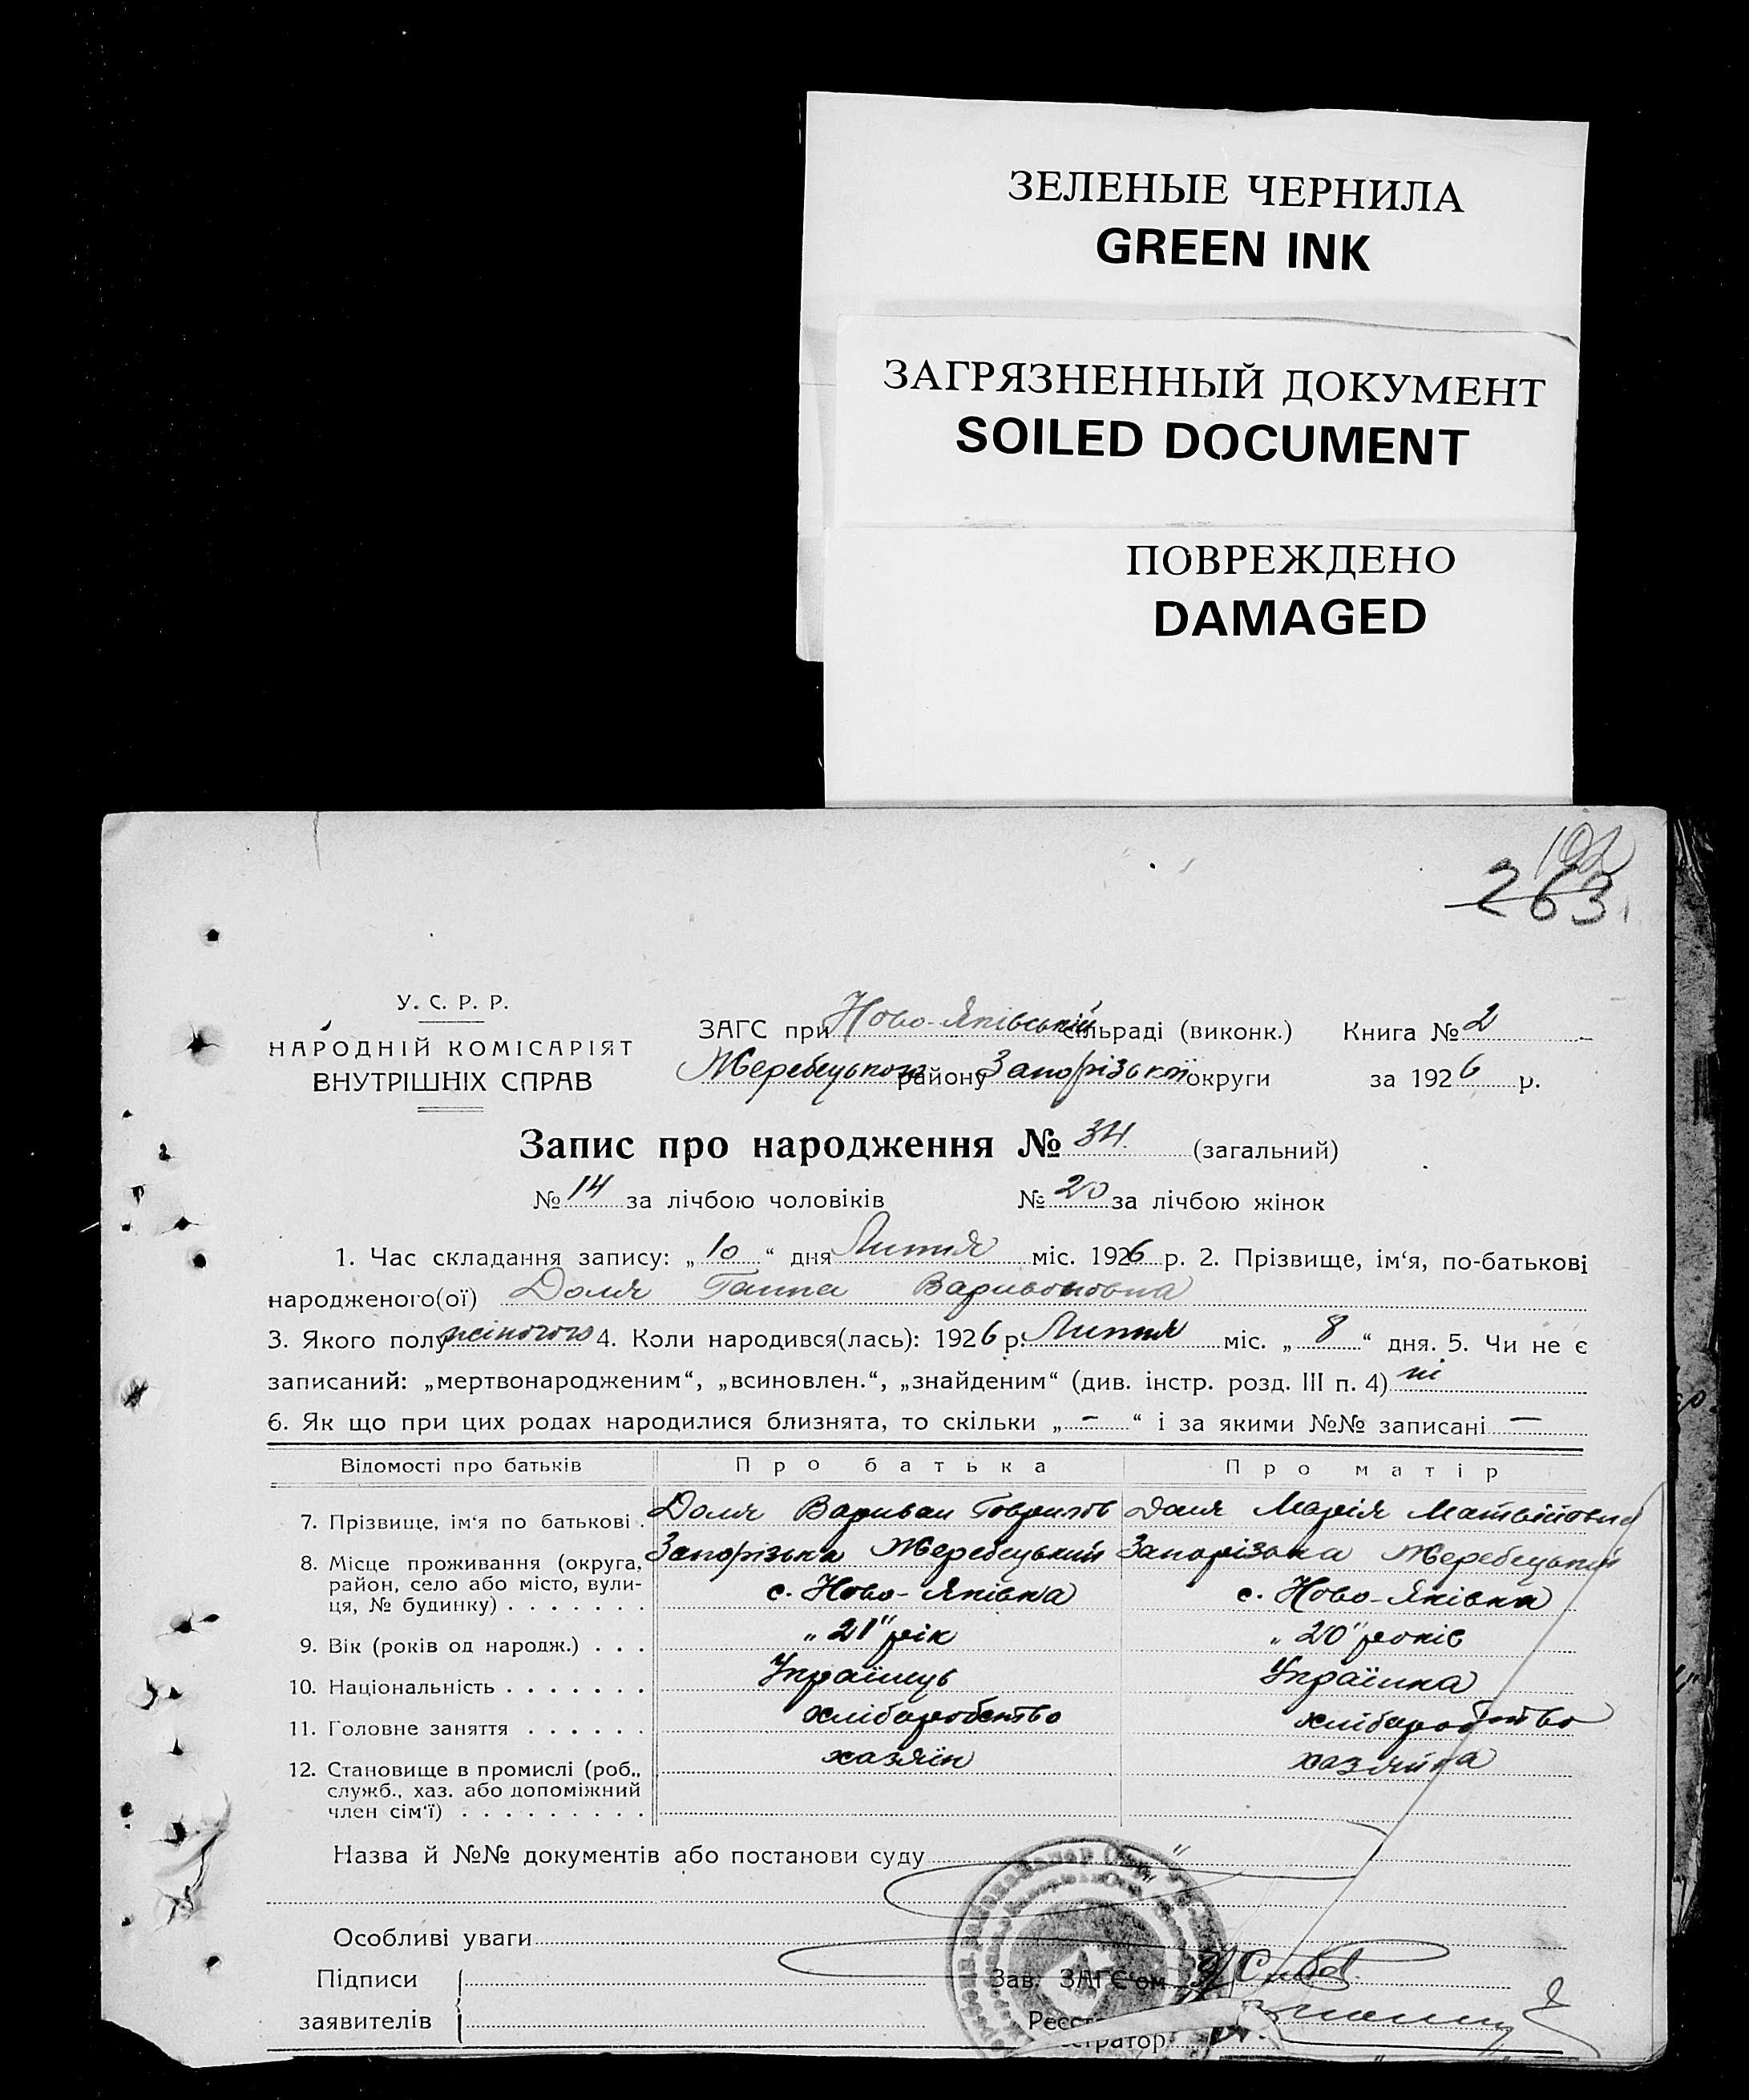 ЗЕЛЕНЫЕ ЧЕРНИЛА
GREEN INK
ЗАГРЯЗНЕННЫЙ ДОКУМЕНТ
SOILED DOCUMENT
ПОВРЕЖДЕНО
DAMAGED
263
У. С. Р. Р.
НАРОДНІЙ КОМІСАРІЯТ
ВНУТРІШНІХ СПРАВ
ЗАГС при Ново-Яківській сільраді (виконк.) Книга № 2
Жеребецького району Запорізької округи за 1926 р.
Запис про народження № 34 (загальний)
№ 14 за лічбою чоловіків № 20 за лічбою жінок
1. Час складання запису: „10“ дня Липня міс. 1926 р. 2. Прізвище, ім‘я, по-батькові
народженого(ої) Доля ГаннаВаривоновна
3. Якого полу жіночого 4. Коли народився(лась): 1926 р. Липня міс. „8“ дня. 5. Чи не є
записаний: „мертвонародженим“, „всиновлен.“, „знайденим“ (див. інстр. розд. III п. 4) ні
6. Як що при цих родах народилися близнята, то скільки „-“ і за якими №№ записані —
Відомості про батьків Про батька Про матір
7. Прізвище, ім‘я по батькові. Доля Вариван Гаврилов Доля Марія Матвійовна
8. Місце проживання (округа, Запорізька Жеребецький Запорізька Жеребецький
район, село або місто, вули-
ця, № будинку) . . . . . . . с. Ново-Яківка с. Ново-Яківка
9. Вік (років од народж.) . . . „21“ рік „20“ років
10. Національність . . . . . . . Українець Українка
11. Головне заняття . . . . . . хліборобство хліборобство
12. Становище в промислі (роб., хазяїн хазяйка
служб., хаз. або допоміжний
член сім‘ї) . . . . . . . . .
Назва й №№ документів або постанови суду
Особливі уваги
Підписи Зав. ЗАГС‘ом
заявителів